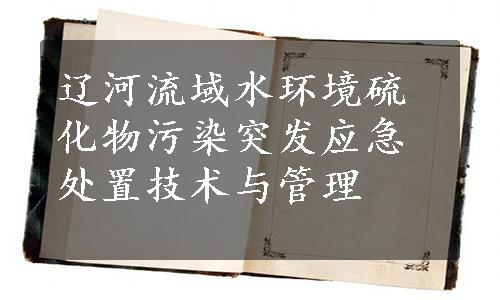 辽河流域水环境硫
化物污染突发应急
处置技术与管理